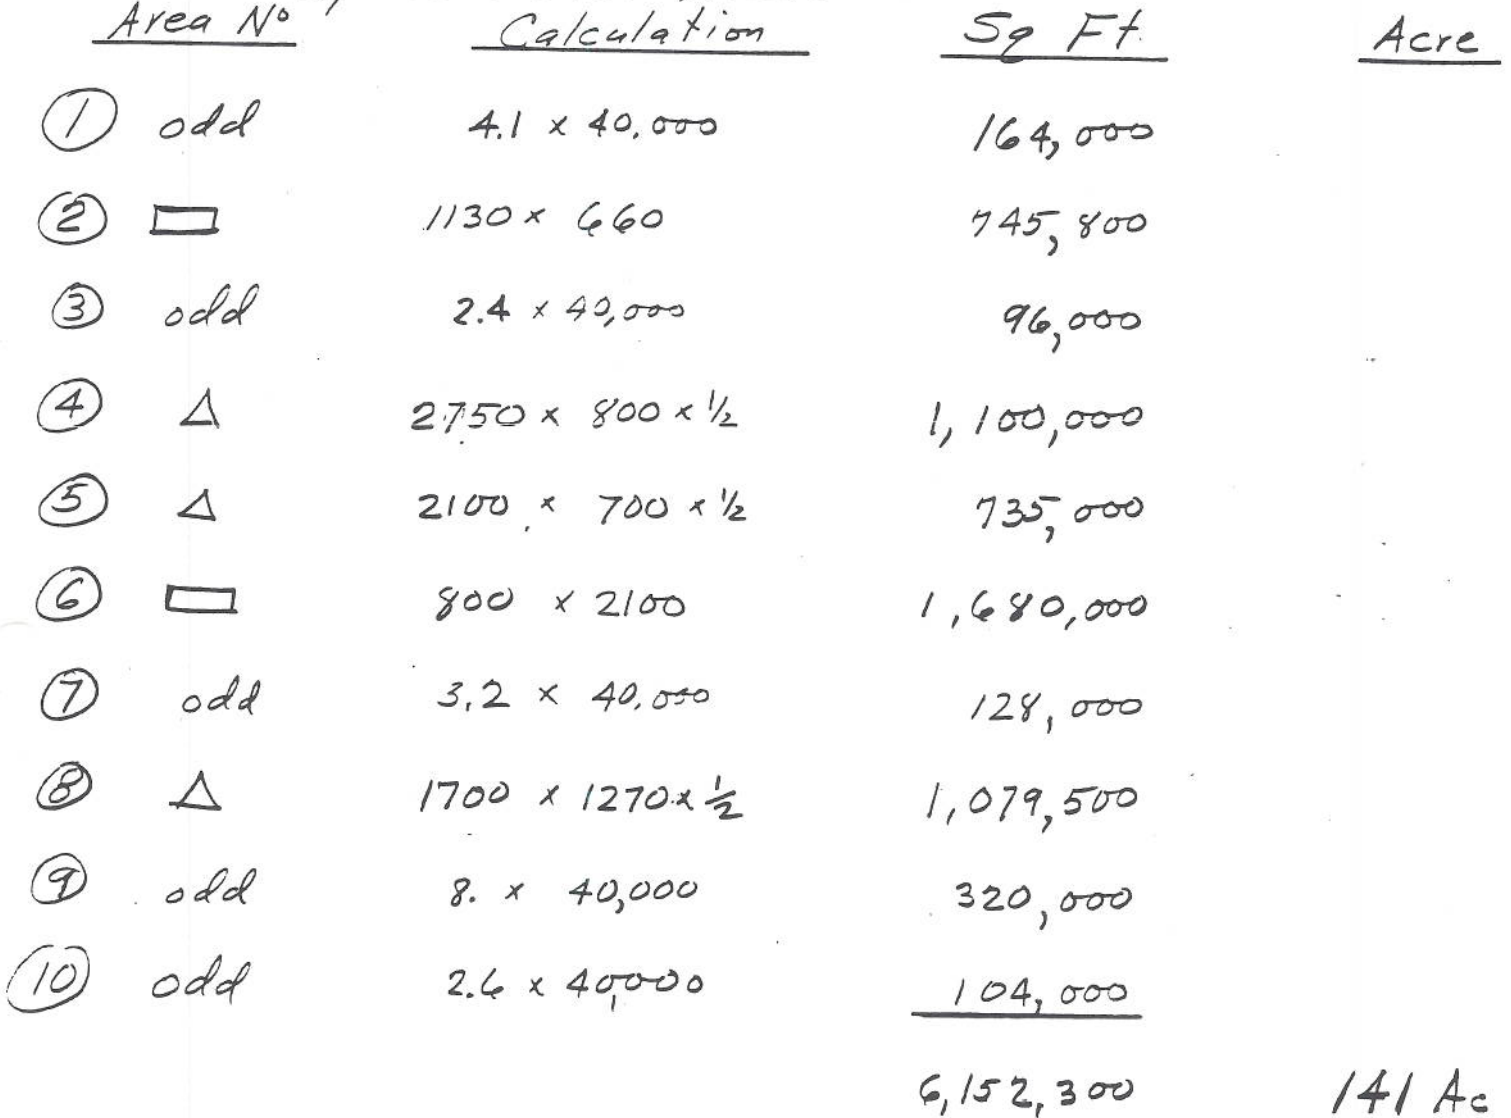 Area No Calculation Sq Ft. Acre
1 odd 4.1 x 40,000 164,000
2 ▭ 1130 x 660 745,800
3 odd 2.4 x 40,000 96,000
4 △ 2750 x 800 x ½ 1,100,000
5 △ 2100 x 700 x ½ 735,000
6 ▭ 800 x 2100 1,680,000
7 odd 3.2 x 40,000 128,000
8 △ 1700 x 1270 x ½ 1,079,500
9 odd 8. x 40,000 320,000
10 odd 2.6 x 40,000 104,000
6,152,300 141 Ac